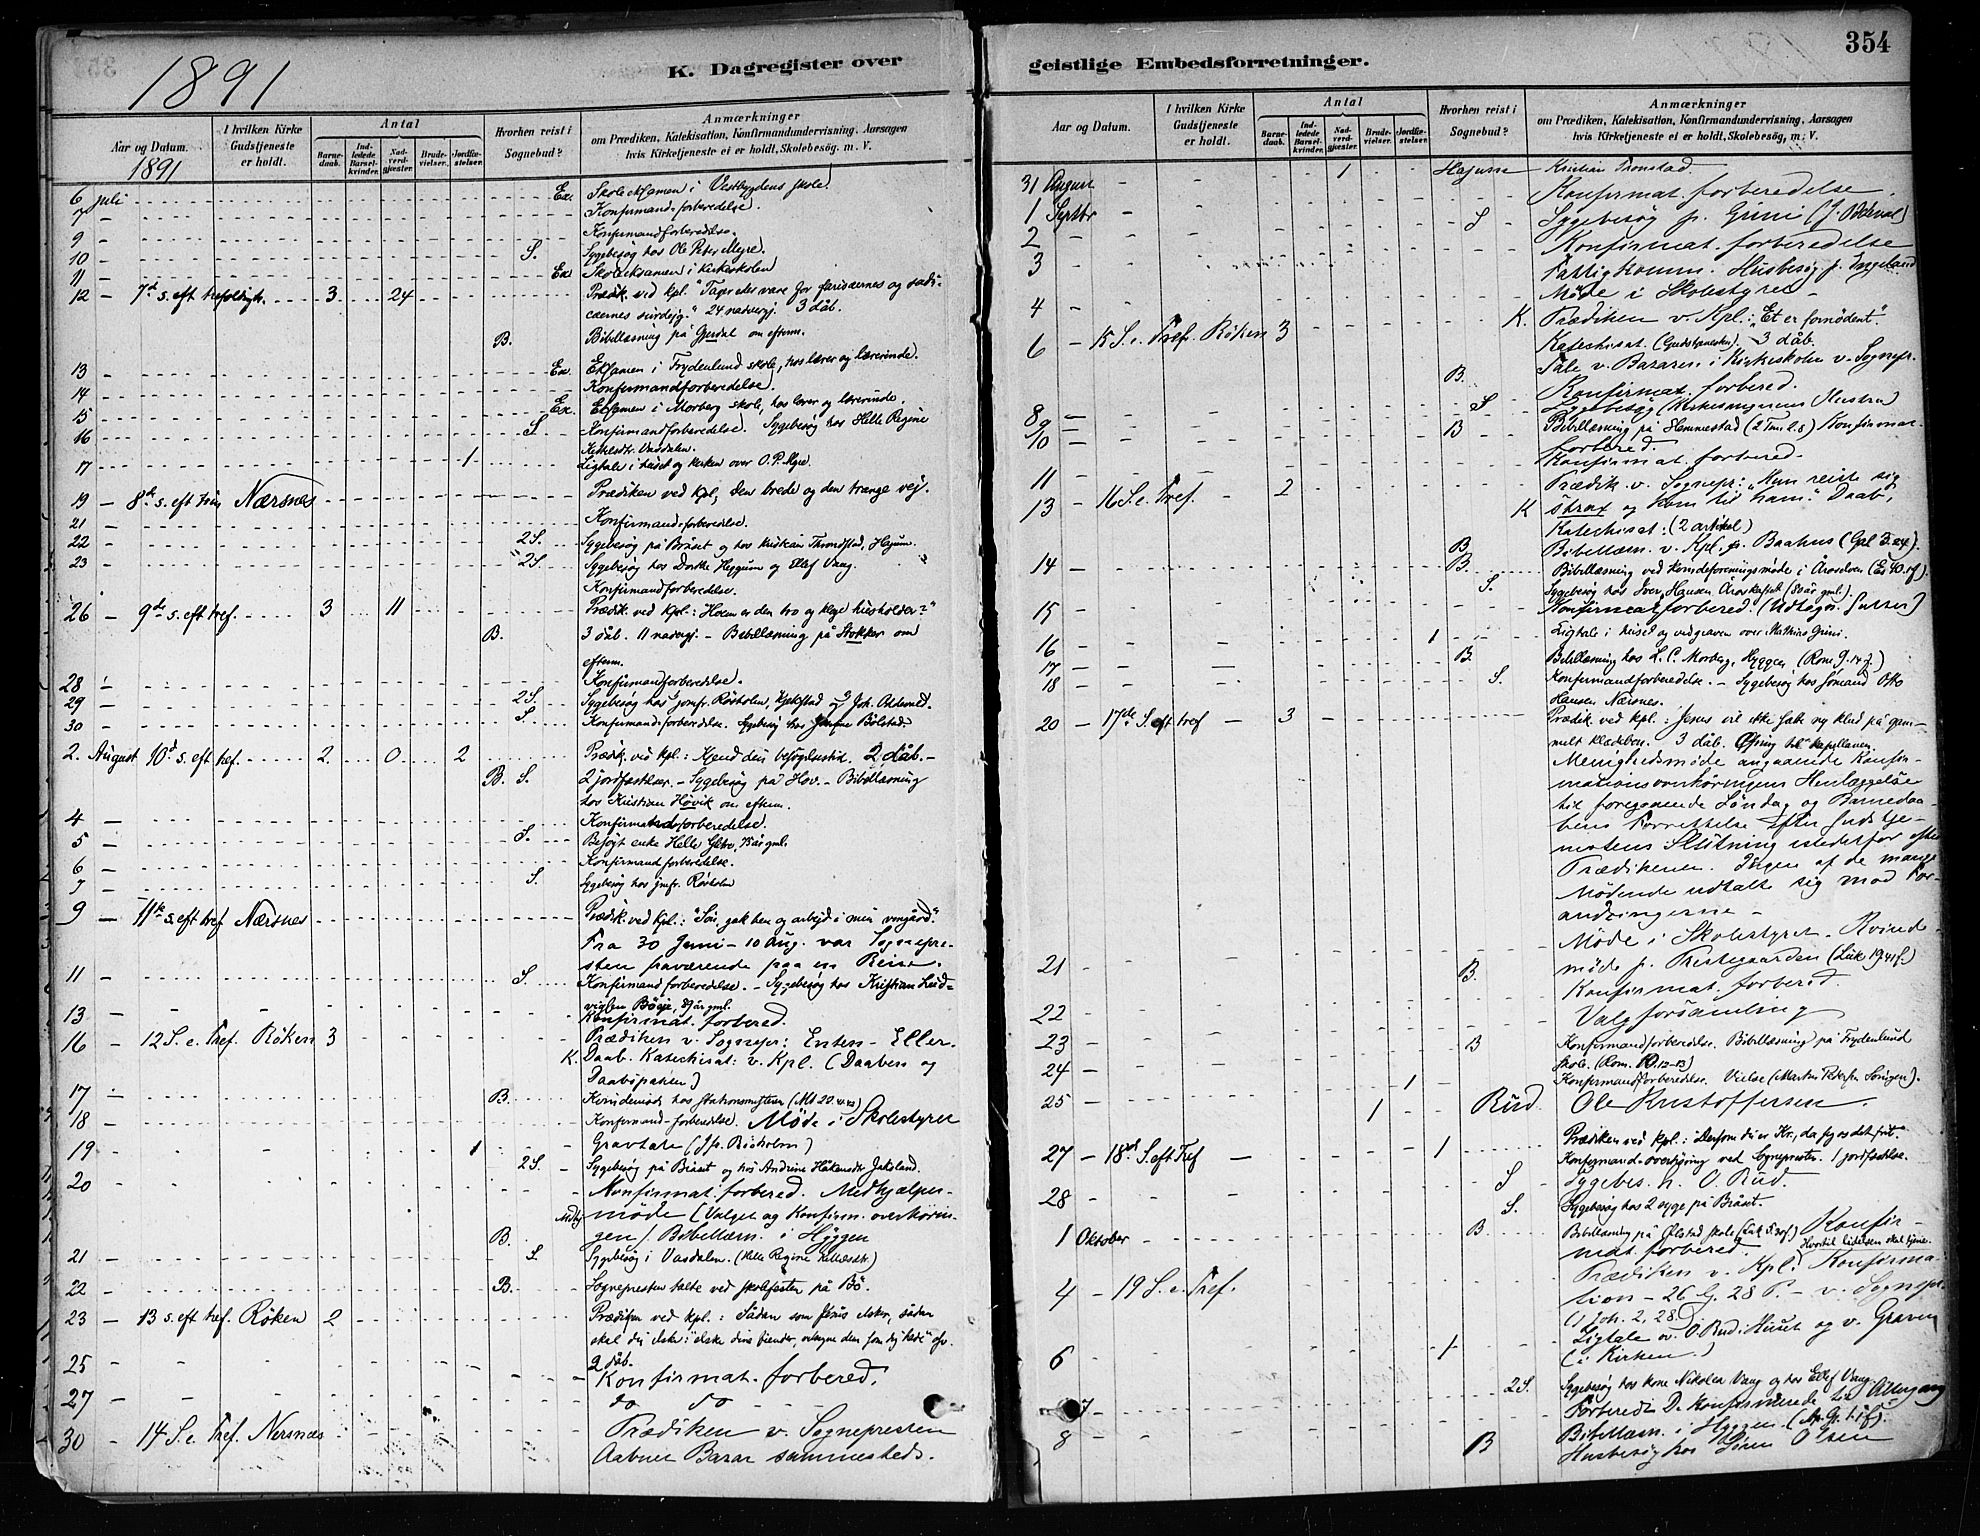 1891
K. Dagregister over
Aar og Datum.
1891
I hvilken Kirke Gudstjeneste er holdt.
Antal
Barnedaab.
Indledede Barselkvinder.
Nadverdgjester.
Brudevielser.
Jordfæstelser.
Hvorhen reist i Sognebud?
Anmærkninger
om Prædiken, Katekisation, Konfirmandundervisning, Aarsagen
hvis Kirketjeneste ei er holdt, Skolebesög, m. V.
6 juli Ex. Skoleeksamen i Vestbygdens skole.
7 - Konfirmand-forberedelse.
9 - Konfirmandforberedelse.
10 - S. Sygebesøg hos Ole Peter Myre.
11 - Ex. Skoleeksamen i Kirkeskolen
12 - 7d s. eft trefoldigh. 3 24 Prædik. ved kpl. "Tager eder vare for farisæernes og sadu-
cæernes surdejg." 24 nadverg. 3 dåb.
B. Bibellæsning på Gjerdal om efterm.
13 - Ex. Eksamen i Frydenlund skole, hos lærer og lærerinde.
14 - Konfirmandforberedelse.
15 - Ex. Eksamen i Morberg skole, hos lærer og lærerinde.
16 - S. Konfirmandforberedelse. Sygebesøg hos Helle Regine
Vasdalen.
17 - 1 Ligtale i huset og kirken over O. P. Myre.
19 - 8de s. eft trin Nærsnes Prædiken ved Kpl, den brede og den trange vej.
21 - Konfirmand-forberedelse.
22 - 2S. Sygebesøg på Bråset og hos Kristian Throndstad, Hajum.
23 - 2S. Sygebesøg hos Dorthe Heggum og Ellef Vang.
Konfirmandforberedelse.
26 - 9de s. eft tref. 3 11 Prædik ved kpl: "Hvem er den tro og kloge husholder?"
B. 3 dåb. 11 nadverg. - Bibellæsning på Stokker om
efterm.
28 - Konfirmandforberedelse.
29 - 2S. Sygebesøg hos jomfr. Røisholm, Kjekstad og Joh.
30 - S. Konfirmand-forberedelse. Sygebesøg hos Bølstad
2. August 10d s. eft tref. 2 0 2 Prædik ved kpl: Kjend din besøgelsestid. 2 dåb.-
B. S. 2 jordfæstelser. - Sygebesøg på Hov. - Bibellæsning
hos Kristian Høvik om efterm.
4 - Konfirmandforberedelse.
5 - S. Besøgt enke Helle
6 - Konfirmandforberedelse.
7 - S. Sygebesøg hos jomfr. Røisholm
9 - 11te s. eft tref Nærsnes Prædik. ved kpl.: "Søn, gak hen og arbejd i min vingård."
Fra 30 Juni - 10 Aug. var Sognepre-
sten fraværende paa en Reise.
11 - S. Konfirmandforberedelse. - Sygebesøg hos Kristian Lud-
vigsen
13 - Konfirmat. forbered.
16 - 12 S. e. Tref. Røken 3 Prædiken v. Sognepr: Enten - Eller.
K. Daab. Katechisat: v. Kpl. (Daaben og
Daabspagten)
17 - B. Kvindemøde hos stationsmesteren (Mt 20
18 - Konfirmand-forberedelse. Møde i Skolestyret
19 - 1 Gravtale (Jfr. Röisholm)
2S. Sygebesøg på Bråset og hos Andrine Håkensdtr
20 - Konfirmat. forbered. Medhjælper-
Mdhj møde (Valget og Konfirm. overhörin-
B. gen). Bibellæsn. i Hyggen
21 - S. Sygebesøg i Vasdalen. (Helle Regine
22 - B. Sognepresten talte ved skolefesten på Bö.
23 - 13 s. eft tref. Røken 2 Prædiken ved kpl.: Sådan som Jesus elsker, sådan
skal du elske: "elsk dine fiender,
2 dåb.
25 - Konfirmat. forbered.
27 - do do
30 - 14 S. e. Tref. Nersnæs Prædiken v. Sognepresten
Aabner Bazar sammesteds.
354
geistlige Embedsforretninger.
Aar og Datum.
I hvilken Kirke Gudstjeneste er holdt.
Antal
Barnedaab.
Indledede Barselkvinder.
Nadverdgjester.
Brudevielser.
Jordfæstelser.
Hvorhen reist i Sognebud?
Anmærkninger
om Prædiken, Katekisation, Konfirmandundervisning, Aarsagen
hvis Kirketjeneste ei er holdt, Skolebesög, m. V.
31 August 1 Hajum Kristian Thronstad.
1 Septbr - Konfirmat. forberedelse.
2 - S Sygebesøg p. Grini
Konfirmat. forberedelse
3 - Fattigkomm. Husbesög p.
4 - Møde i Skolestyret -
6 - 15 S. e. Tref. Röken 3 K. Prædiken v. Kpl.: "Et er fornødent".
Katechisat. (Gudstjenesten). 3 dåb.
B. Tale v. Bazaren i Kirkeskolen v. Sognepr.
8 - Konfirmat. forbered.
9 - S. Sygebesøg (Kirkesangerens Hustru)
10 - B Bibellæsning på Hemmestad (2 Tim 2.8) Konfirmat.
forbered.
11 - Konfirmat. forbered.
13 - 16 S. e. Tref. - 2 Prædik. v. Sognepr: "Hun reiste sig
K strax og kom til ham." Daab,
Katechisat: (2 artikel)
B. Bibellæsn. v. Kpl. p. Baahus (Gal 3.24).
14 - B. Bibellæsning ved kvindeforeningsmøde i Åroselven (Es 40.1f).
S. Sygebesøg hos Iver Hansen
15 - Konfirmatforbered.
16 - 1 Ligtale i huset og ved graven over Mathias Grini.
17 - B. Bibellæsning hos L. C. Morberg, Hyggen (Rom 9.14f.)
18 - S. Konfirmandforberedelse. - Sygebesøg hos sømand Otto
Hansen Nærsnes.
20 - 17de S. eft tref - 3 Prædik ved kpl.: Jesus vil ikke have ny klud på gam-
melt klædebon. 3 dåb. Ofring til kapellanen.
Menighedsmøde angaaende Konfir-
mationsoverhøringens Henlæggelse
til foregaaende Løndag og Barnedaa-
bens Forrettelse efter Gudstje-
nestens Slutning istedetfor efter
Prædikenen. Ingen af de mange
Mødende udtalte sig mod For-
andringerne -
21 - Møde i Skolestyret. Kvinde-
B. møde p. Prestegaarden (Luk 19.41f.)
Konfirmat. forbered.
22 - Valgforsamling
23 - B Konfirmandforberedelse. Bibellæsning på Frydenlund
skole. (Rom. 10.12-13)
24 - 1 Konfirmandforberedelse. Vielse (Martin Pedersen
25 - 1 Rud Ole Kristoffersen.
27 - 18de S. eft Tref - 1 Prædiken ved kpl.: "Dersom du er Kr.,
Konfirmand-overhøring ved Sognepresten. 1 jordfæstelse.
S Sygebes. h. O. Rud.
28 - S. Sygebesøg hos 2 syge på Bråset.
1 Oktober B Bibellæsning på Ølstad skole Konfir-
mat. forbered. Hvortil lidelsen skal tjene.
4 - 19 S. e. Tref. Prædiken v. Kpl. Konfirma-
tion - 26 G. 28 P. - v. Sognepr.
(1 Joh. 2, 28)
6 - 1 Ligtale ov. O. Rud i Huset og v. Graven
(i Kirken.)
2S. Sygebesøg hos kone Nikolea Vang og hos Ellef Vang.
7 - Forberedt D. Konfirmerede til Altergang
8 - Bibellæsn. i Hyggen (Ap. Gj. 1.1f).
B Husbesøg hos Sören Olsen